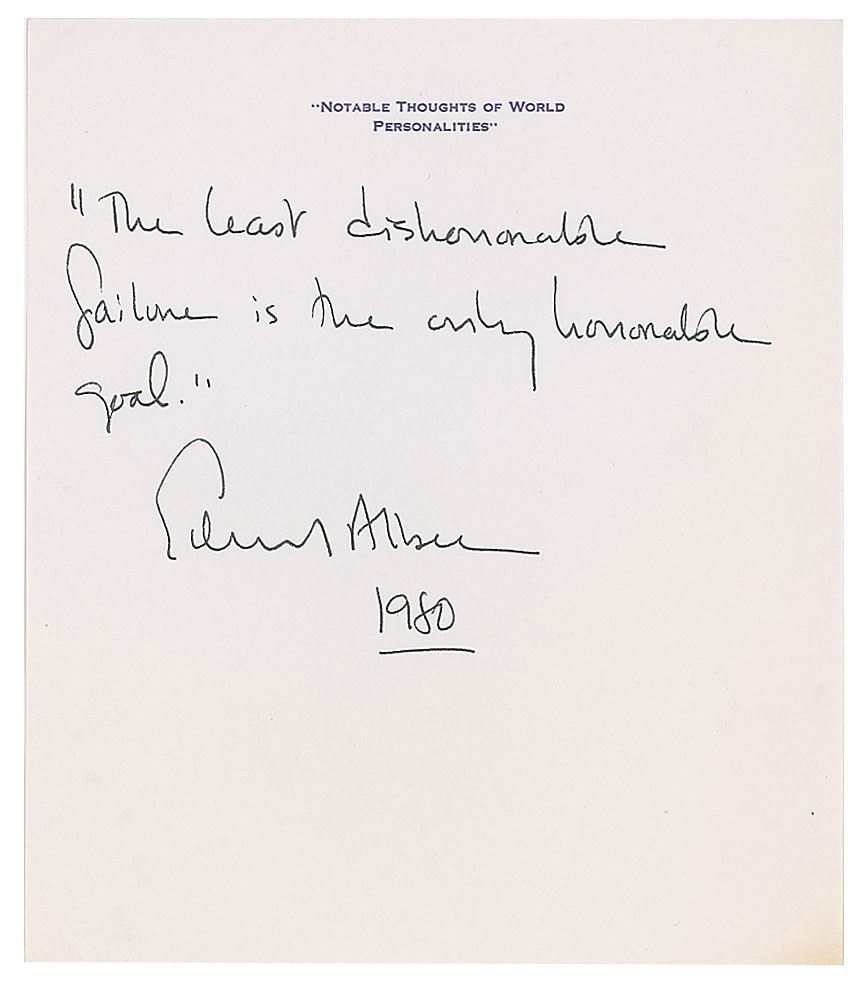 "NOTABLE THOUGHTS OF WORLD
PERSONALITIES"
"The least dishonorable
failure is the only honorable
goal."
Edward Albee
1980